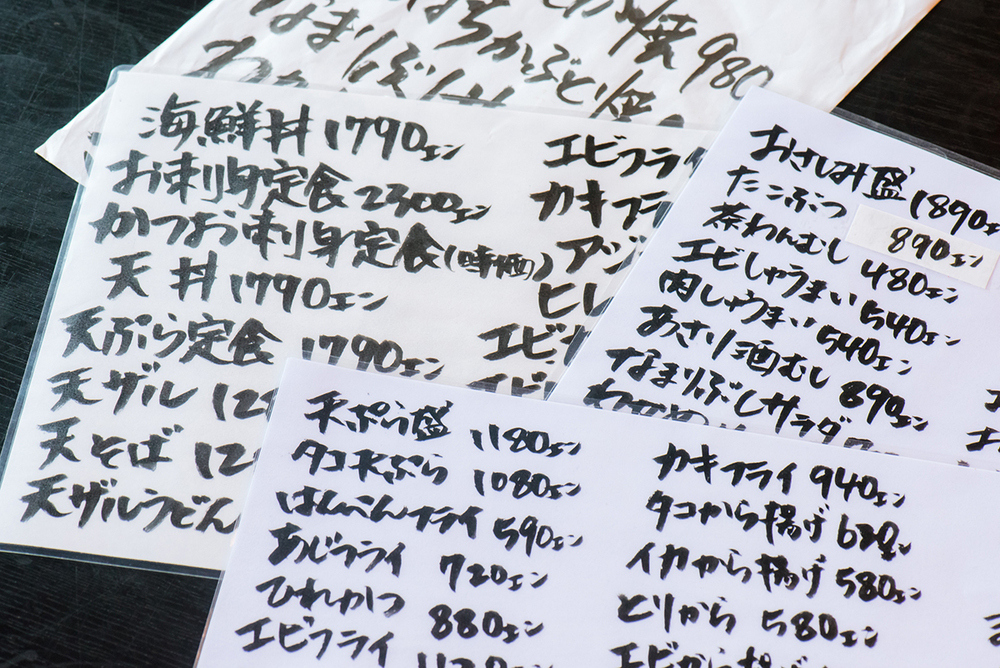 焼 980
なまりぶし
ちかぶと焼
海鮮丼 1790エン
お刺身定食 2300エン
かつお刺身定食(時価)
天丼 1790エン
天ぷら定食 1790エン
天ザル
天そば
天ザルうどん
エビフライ
カキフライ
アジ
ヒレ
エビ
エビ
おさしみ盛 1890エン
たこぶつ 890エン
茶わんむし 480エン
エビしゅうまい 540エン
肉しゅうまい 540エン
あさり酒むし 890エン
なまりぶしサラダ
天ぷら盛 1180エン
タコ天ぷら 1080エン
はんぺんフライ 590エン
あじフライ 720エン
ひれかつ 880エン
エビフライ
カキフライ 940エン
タコから揚げ 620エン
イカから揚げ 580エン
とりから 580エン
エビから